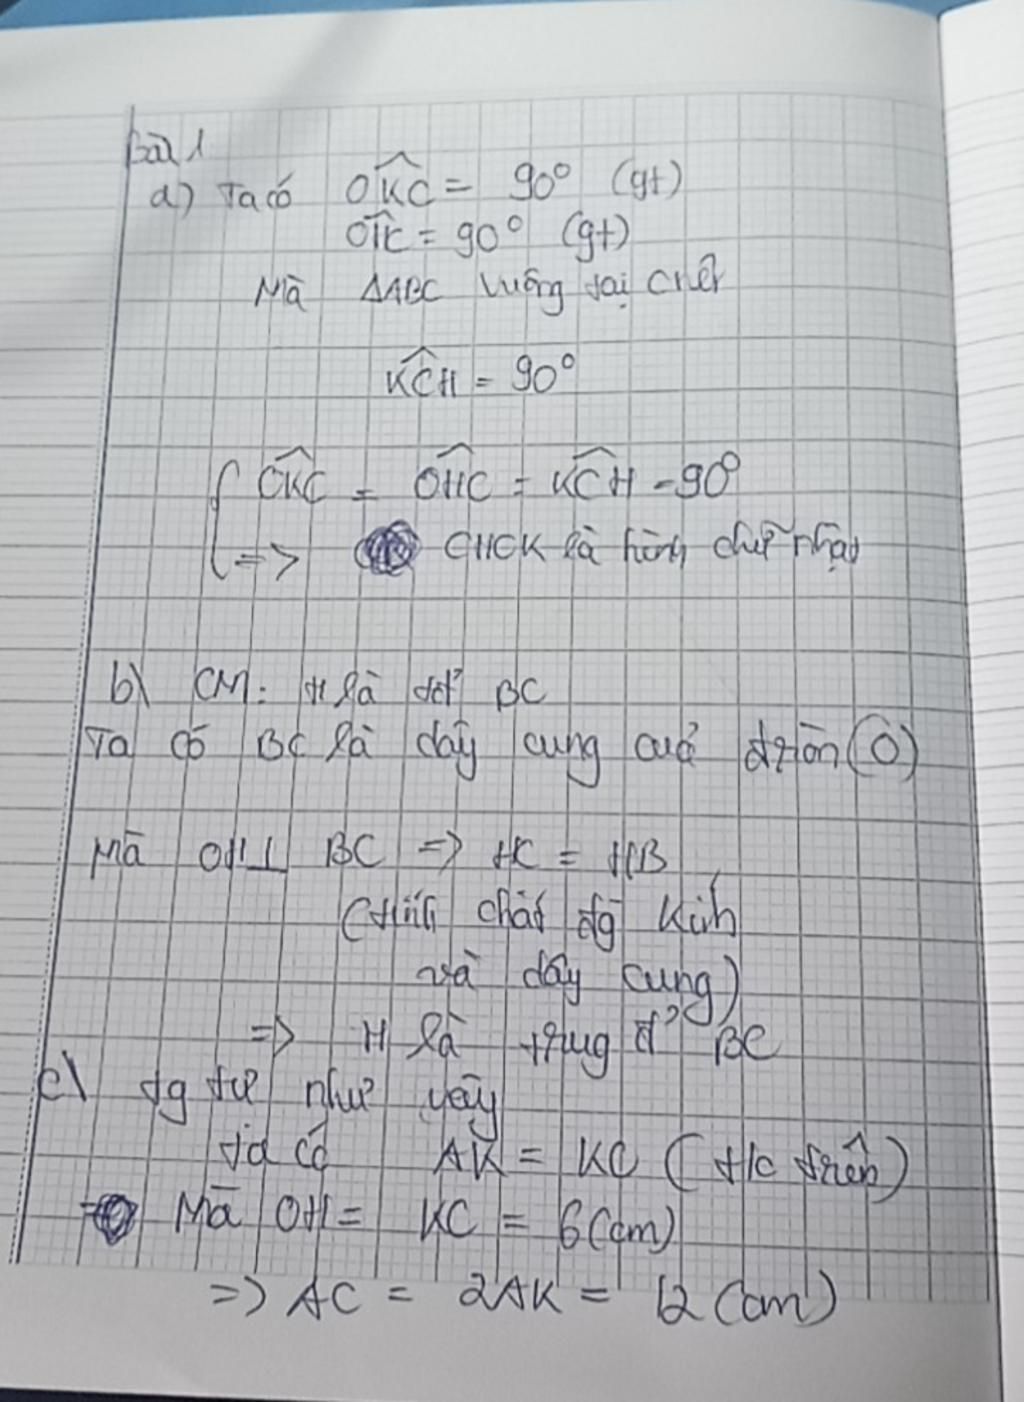 Bài 1
a) Ta có OKC = 90° (gt)
OHC = 90° (gt)
Mà ΔABC vuông tại C nên
KCH = 90°
OKC = OHC = KCH = 90°
=> CHOK là hình chữ nhật
b) CM: H là tđ BC
Ta có BC là dây cung cuả đtròn (O)
Mà OH ⊥ BC => HC = HB
(tính chất đg kính
và dây cung)
=> H là trug đ' BC
c) tg tự như vậy
ta có AK = KC (t/c trên)
Mà OH = KC = 6 (cm)
=> AC = 2AK = 12 (cm)